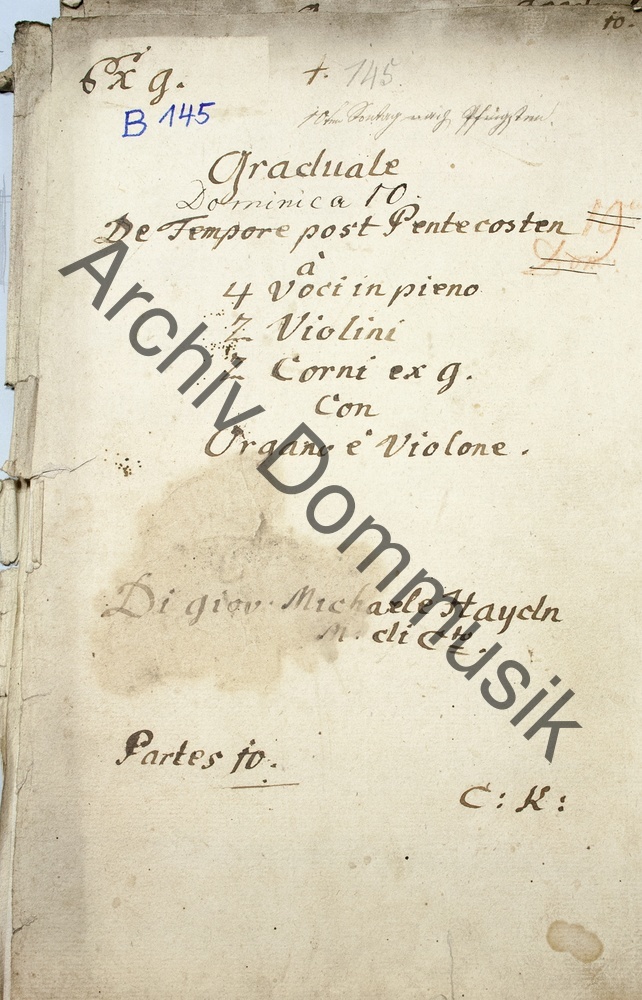 10.
Ex g.
+. 145
B 145
10ten Sontag nach Pfingsten.
Graduale
Dominica 10.
De Tempore post Pentecosten
à
4 Voci in pieno
2 Violini
2 Corni ex g.
Con
Organo è Violone.
Di giov. Michaele Haydn
M. di Cto.
Partes 10.
C: K:
Archiv Dommusik